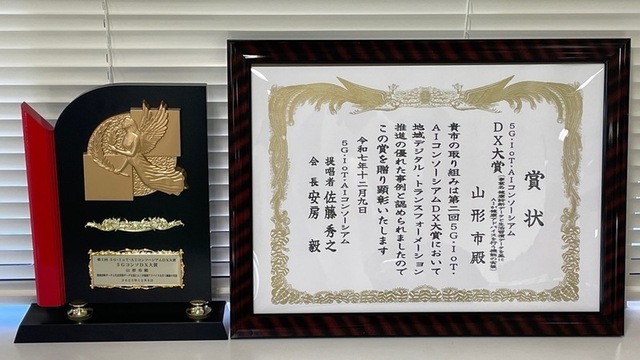 賞状
5G・IoT・AIコンソーシアム
DX大賞
山形市殿
貴市の取り組みは第二回5G・IoT・
AIコンソーシアムDX大賞において
地域デジタル・トランスフォーメーション
推進の優れた事例と認められましたので
この賞を贈り顕彰いたします
令和七年十二月九日
5G・IoT・AIコンソーシアム
提唱者 佐藤秀之
会長 安房毅
5GコンソDX大賞
山形市殿